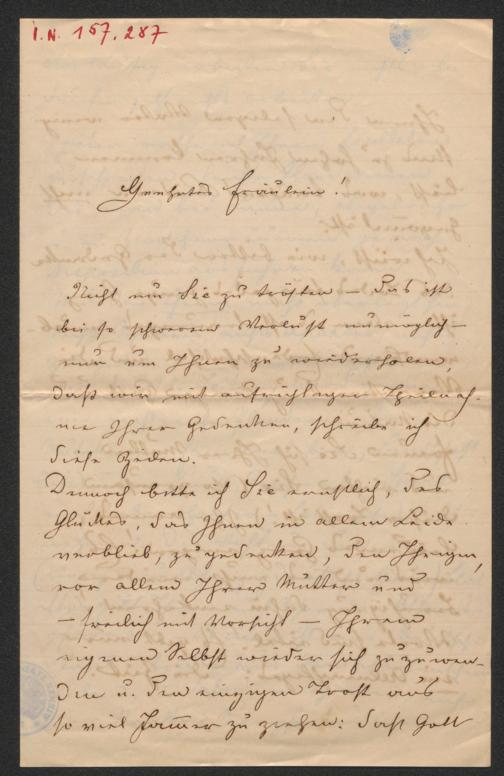 I.N. 157.287
Geehrtes Fräulein!
Nicht um Sie zu trösten – das ist
bei so schwerem Verlust unmöglich –
nur um Ihnen zu wiederholen,
daß wir mit aufrichtiger Theilnah-
me Ihrer Gedenken, schreibe ich
diese Zeilen.
Dennoch bitte ich Sie ernstlich, des
Glückes, das Ihnen in allem Leide
verblieb, zu gedenken, den Ihrigen,
vor allem Ihrer Mutter und
– freilich mit Vorsicht – Ihrem
eigenen Selbst wieder sich zuzuwen-
den u. den einzigen Trost aus
so viel Jammer zu ziehen: daß Gott